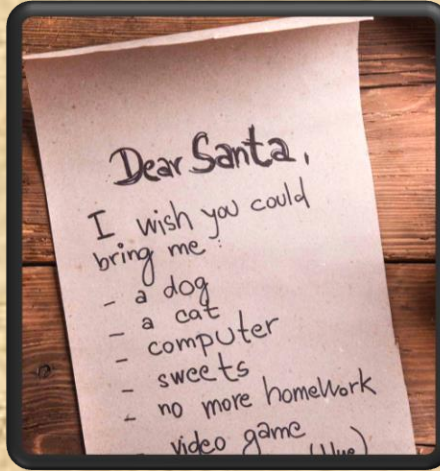 Dear Santa,
I wish you could
bring me :
- a dog
- a cat
- computer
- sweets
- no more homework
video game